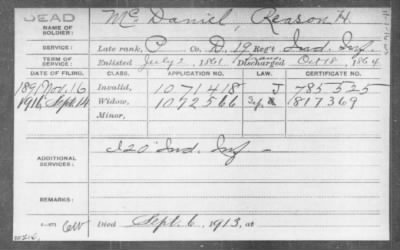 DEAD
NAME OF SOLDIER: Mc Daniel, Reason H.
SERVICE: Late rank, P Co. D, 19 Reg't Ind. Inf.
TERM OF SERVICE: Enlisted July 2, 1861 Discharged Oct 18, 1864
DATE OF FILING. CLASS. APPLICATION NO. LAW. CERTIFICATE NO.
1891 Nov. 16 Invalid, 1071418 J 785525
1916 Sept. 14 Widow, 1072566 817369
Minor,
ADDITIONAL SERVICES: I 20" Ind. Inf
REMARKS:
Died Sept. 6, 1913, at